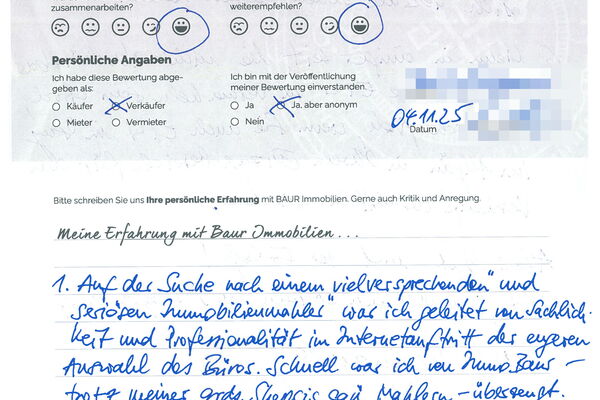 zusammenarbeiten?
weiterempfehlen?
Persönliche Angaben
Ich habe diese Bewertung abge-
geben als:
Käufer Verkäufer
Mieter Vermieter
Ich bin mit der Veröffentlichung
meiner Bewertung einverstanden.
Ja Ja, aber anonym
Nein
04.11.25
Datum
Bitte schreiben Sie uns Ihre persönliche Erfahrung mit BAUR Immobilien. Gerne auch Kritik und Anregung.
Meine Erfahrung mit Baur Immobilien...
1. Auf der Suche nach einem vielversprechenden" und
seriösen Immobilienmakler" war ich geleitet von Sachlich-
keit und Professionalität im Internetauftritt der engeren
Auswahl des Büros. Schnell war ich von Immo Baur –
trotz meiner Skepsis Maklern – überzeugt.